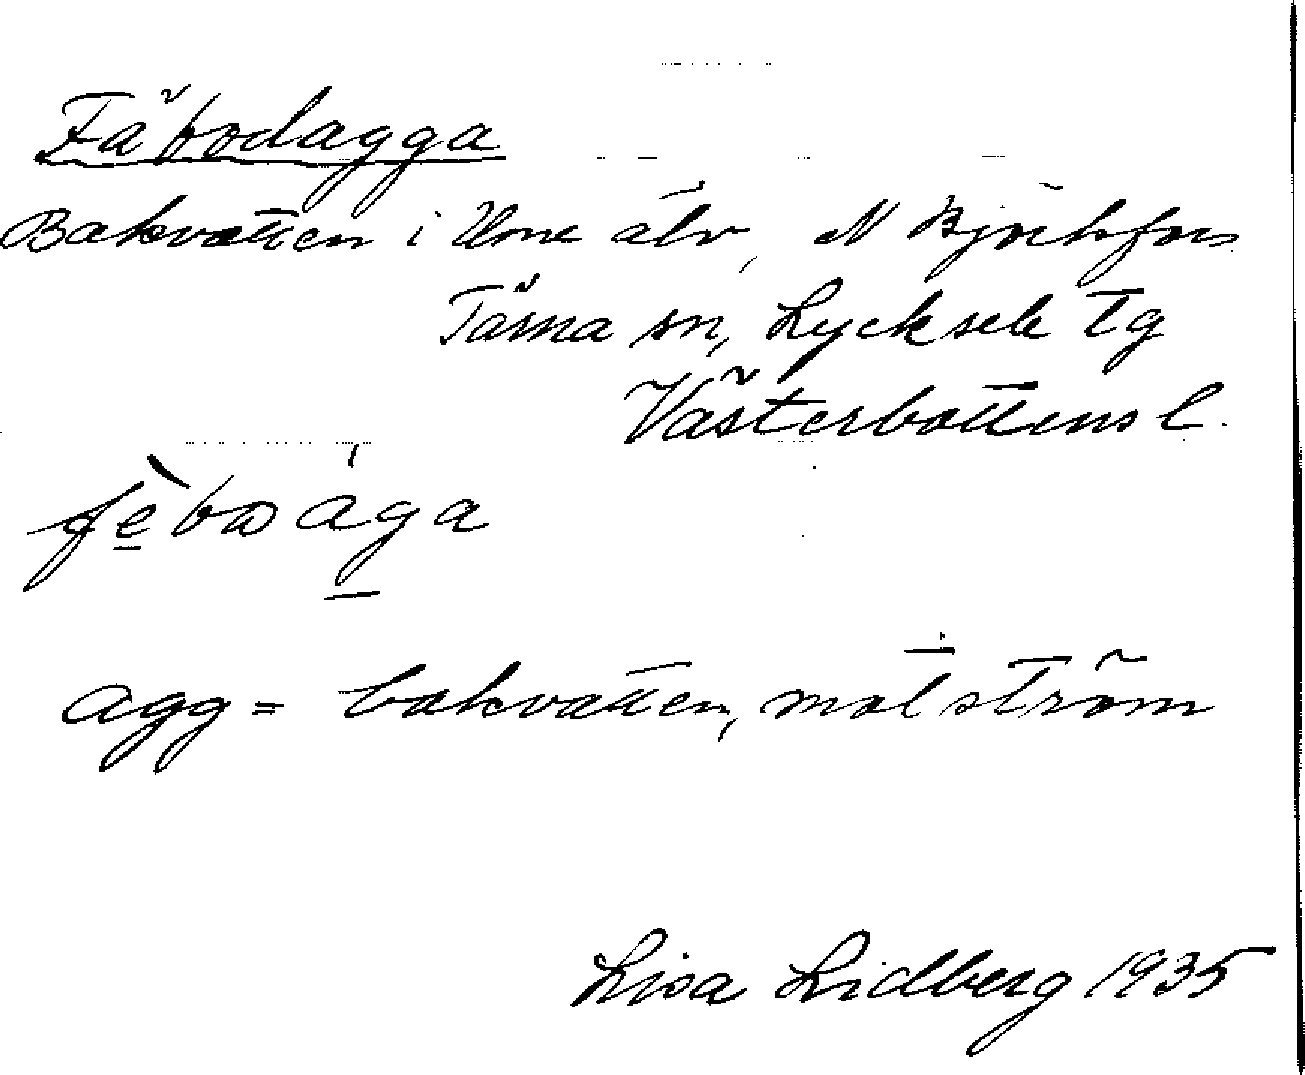 Fäbodagga
Bakvatten i Ume älv, N Björkfors
Tärna sn, Lycksele Tg
Västerbottens l.
fèbωága
agg = bakvatten, malström
Lisa Lidberg 1935